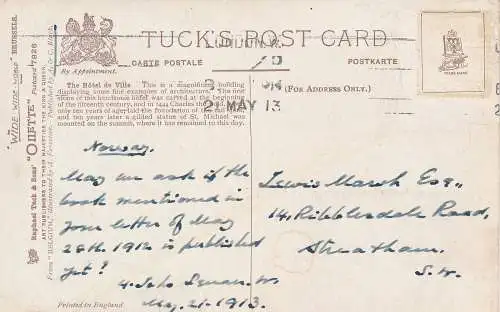 TUCK'S POST CARD
CARTE POSTALE
POSTKARTE
By Appointment.
(FOR ADDRESS ONLY.)
LONDON. W.
21 MAY 13
TRADE MARK
"WIDE-WIDE-WORLD" BRUSSELS.
Raphael Tuck & Sons' "OILETTE" Postcard 7826
ART PUBLISHERS TO THEIR MAJESTIES THE KING & QUEEN.
The Hôtel de Ville This is a magnificent building
displaying some fine examples of architecture. The
of this historic hôtel was carved at the
of the fifteenth century, and in 1444 Charles the
only ten years of age laid the foundation of
and ten years later a gilded statue of St. Michael was
mounted on the summit, where it has remained to this day.
Norway.
May we ask if the
book mentioned in
your letter of May
28th 1912 is published
yet?
May. 21. 1913.
Printed in England
Lewis Marsh Esq.,
14, Ribblesdale Road,
Streatham.
S.W.